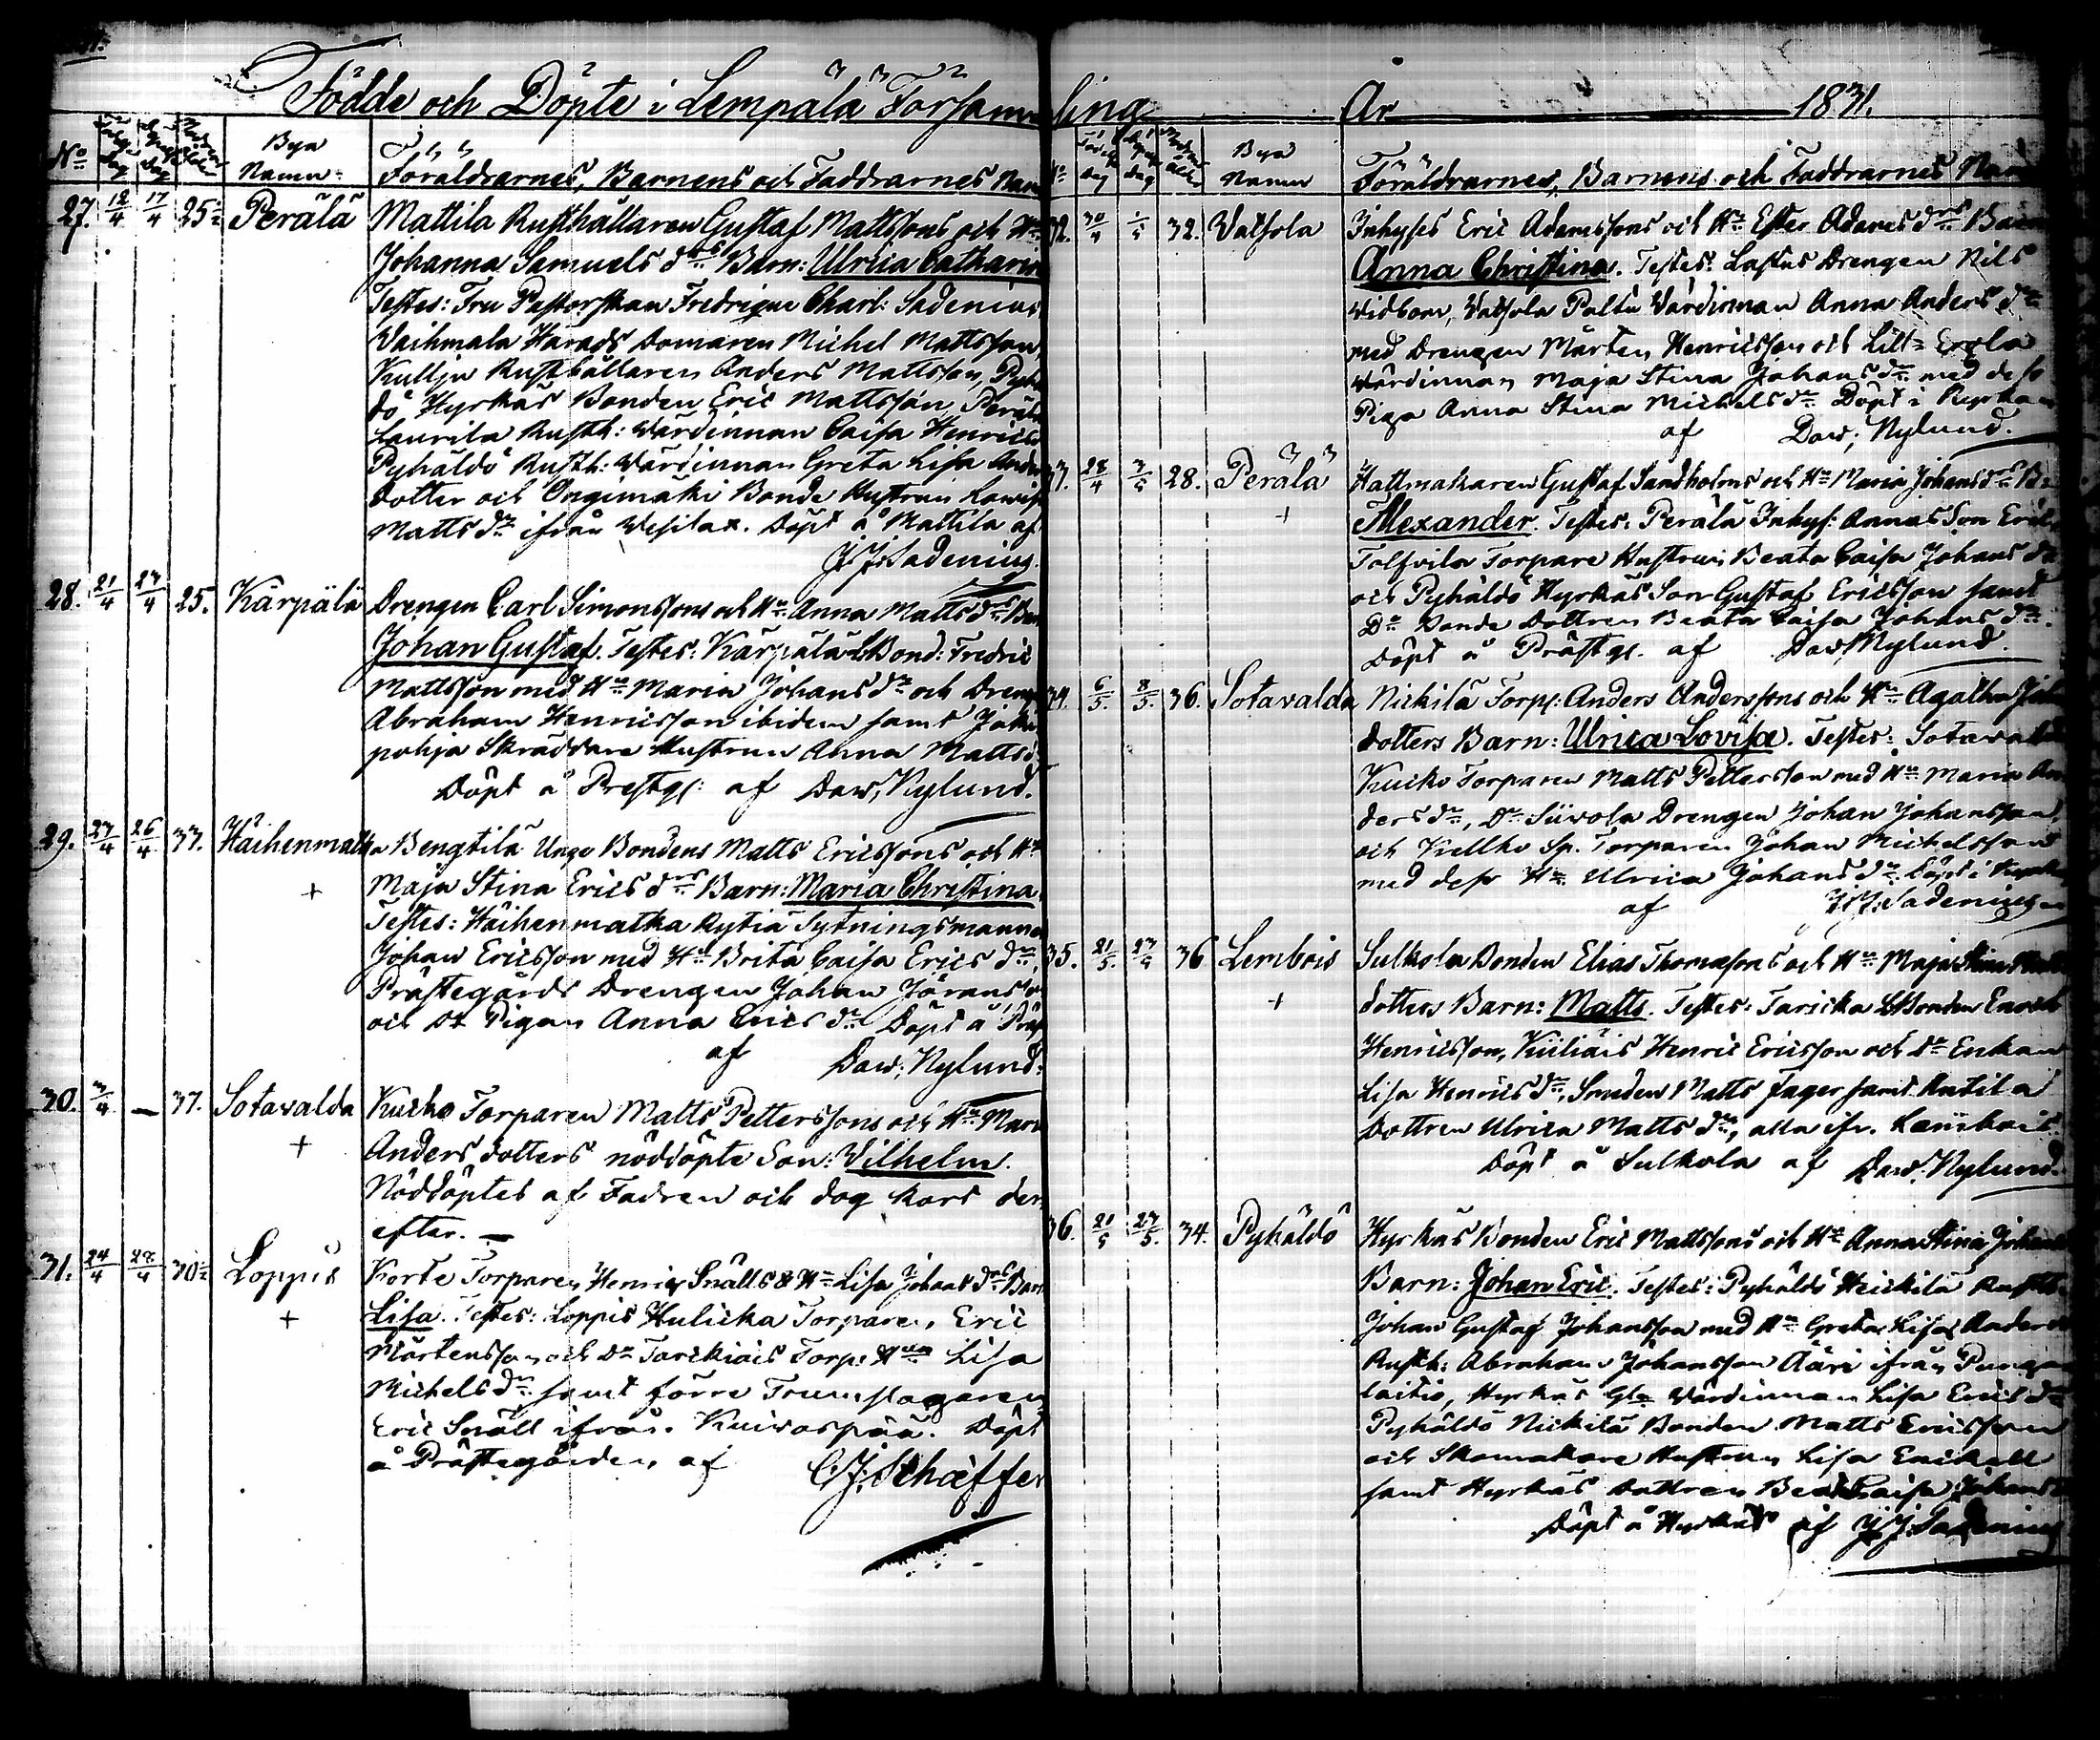 Födde och Döpte i Lempälä Församling År 1831.
No Bya Namn Föräldrarnes, Barnens och Faddrarnes Nam
27. 12/4 17/4 25 Perälä Mattila Rusthållaren Gustaf Mattssons och Hu
Johanna Samuels drs Barn: Ulrica Catharina
Testes: Fru Pastorskan Fredrique Charl: Sadenius
Vaihmala Härads Domaren Michel Mattsson,
Kullju Rusthållaren Anders Mattsson, Pyhä
dö Hyrkäs Bonden Eric Mattsson, Perälä
Laurila Rusth: Wärdinnan Caisa Henrics
Pyhäldö Rusth: Wärdinnan Greta Lisa Anders
dotter och Ongimäki Bonde Hustrun Lovisa
Matts dr ifrån Wesilax. Döpt å Mattila af
J.J. Sadenius.
28. 21/4 23/4 25. Kärpälä Drengen Carl Simonssons och Hu Anna Matts drs Barn
Johan Gustaf. Testes: Kärpälä LBond: Fredric
Mattsson med Hu Maria Johans dr och Dreng
Abraham Henricsson ibidem samt
pohja Skräddare Hustrun Anna Matts d
Döpt å Prestg: af Dav; Nylund.
29. 23/4 26/4 33. Häihenmatka Bengtilä Unge Bondens Matts Ericssons och Hu
+ Maja Stina Erics drs Barn: Maria Christina.
Testes: Häihenmatka Rytiä Sytningsmannen
Johan Ericsson med Hu Brita Caisa Erics dr,
Prästegårds Drengen Johan Göransson
och Do Pigan Anna Erics dr Döpt å Präs
af Dav; Nylund:
30. 3/4 — 37. Sotavalda Kucko Torparen Matts Petterssons och Hu Mari
+ Anders dotters nöddöpte Son: Vilhelm.
Nöddöptes af Fadren och dog kort der
efter. —
31. 24/4 28/4 30 Loppis Korte Torparen Henric Snälls & Hu Lisa Johans drs Barn
+ Lisa. Testes: Loppis Hulicka Torparen Eric
Mårtensson och Do Torp: Hun Lisa
Michels dr samt förre Trumslagaren
Eric Snäll ifrån Kuivaspää. Döpt
å Prästegården af C.J. Schæffer
No Bya Namn Föräldrarnes, Barnens och Faddrarnes Nam
32. 30/4 1/5 32. Vatsola Inhyses Eric Adamssons och Hu Ester Adams drs Barn
Anna Christina. Testes: Lastus Drengen Nils
Widbom, Vatsola Paltu Wärdinnan Anna Anders dr
med Drengen Mårten Henricsson och Lill- Erola
Wärdinnan Maja Stina Johans dr med dess
Piga Anna Stina Michels dr Döpt i Kyrkan
af Dav; Nylund.
33. 28/4 3/5 28. Perälä Hattmakaren Gustaf Sandholms och Hu Maria Johans drs B:
+ Alexander. Testes: Perälä Inhys: Annas Son Eric,
Tolfvila Torpare Hustrun Beata Caisa Johans dr
och Pyhäldö Hyrkäs Son Gustaf Ericsson samt
Do Bonde Dottren Beata Caisa Johans dr.
Döpt å Prästg. af Dav; Nylund.
34. 6/5. 8/5. 36. Sotavalda Nickilä Torp: Anders Anderssons och Hu Agatha Joh
dotters Barn: Ulrica Lovisa. Testes: Sotavalda
Kucko Torparen Matts Pettersson med Hu Maria An
ders dr, Do Siivola Drengen Johan Johansson,
och Kellho Sp. Torparen Johan Michelsson
med dess Hu Ulrica Johans dr. Döpt i Kyrkan
af J.J. Sadenius
35. 21/5. 23/5 36 Lembois Sulkola Bonden Elias Thomassons och Hu Maja Stina
+ dotters Barn: Matts. Testes: Taricka LBonden Enoch
Henricsson, Kiiliäis Henric Ericsson och Do Enkan
Lisa Henrics dr, Smeden Matts Fager samt Antila
Dottren Ulrica Matts dr, alla ifr. Lembois
Döpt å Sulkola af Dav: Nylund.
36. 21/5 23/5. 34. Pyhäldö Hyrkäs Bonden Eric Mattssons och Hu Anna Stina Johans
Barn: Johan Eric. Testes: Pyhäldö Heickilä Rusth:
Johan Gustaf Johansson med Hu Greta Lisa Anders
Rusth: Abraham Johansson Ääri ifrån Punga
laitio, Hyrkäs Gla Wärdinnan Lisa Erics dr
Pyhäldö Nickilä Bonden Matts Ericsson
och Skomakare Hustrun Lisa Enckell
samt Hyrkäs Dottren Beata Caisa Johans d
Döpt å Hyrkäs af J.J. Sadenius